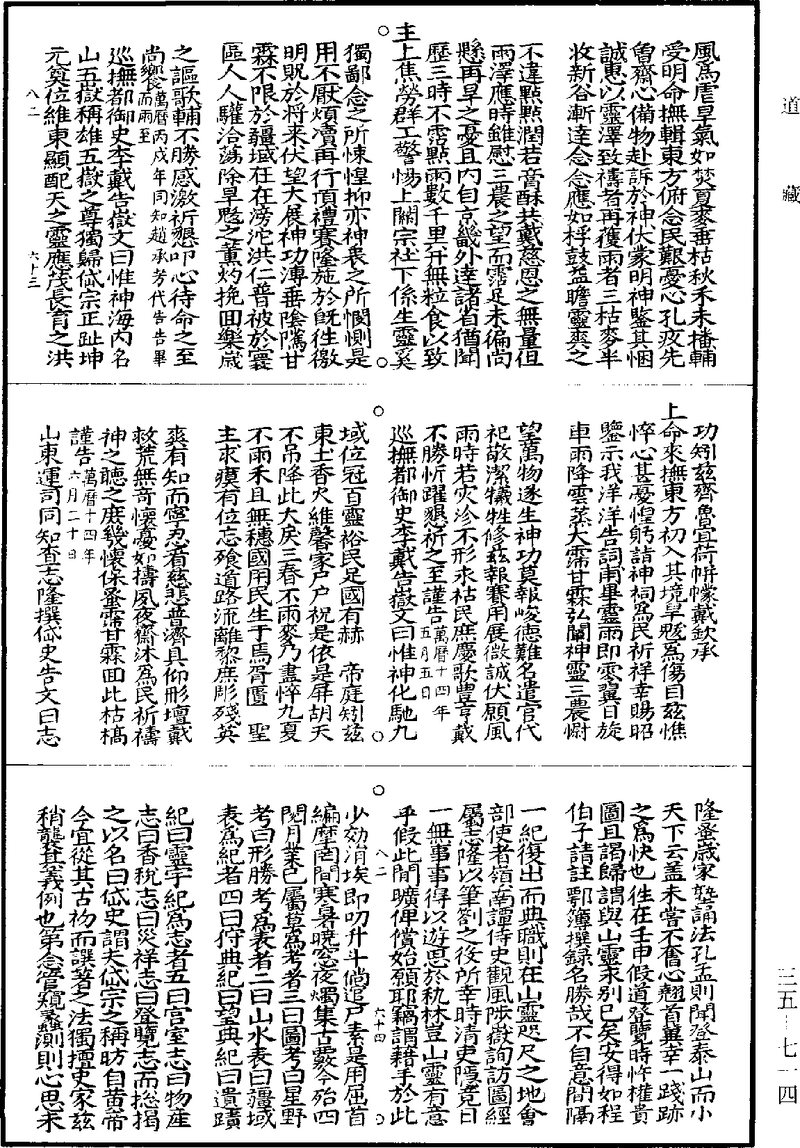 道藏
風爲虐旱氣如焚夏麥垂枯秋禾未播輔
受明命撫輯東方俯念民艱憂心孔疚先
魯齋心備物赴訴於神伏蒙明神鑒其悃
誠惠以靈澤致禱者再獲雨者三枯麥半
收新谷漸達念念應如桴鼓益瞻靈爽之
不違點點潤若膏酥共戴慈恩之無量但
雨澤應時雖慰三農之望而霑足未徧尚
懸再旱之憂且内自京畿外達諸省猶聞
歷三時不霑點雨數千里幷無粒食以致
主上焦勞群工警惕上關宗社下係生靈奚
獨鄙念之所悚惶抑亦神衷之所憫惻是
用不厭煩瀆再行頂禮賽隆施於旣徃徼
明貺於將来伏望大展神功溥垂陰隲甘
霖不限於疆域在在滂沱洪仁普被於寰
區人人驩洽蕩除旱魃之薰灼挽回樂歲
之謳歌輔不勝感激祈懇叩心待命之至
尚饗萬曆丙戌年同知趙承芳代告告畢而雨至
巡撫都御史李戴告嶽文曰惟神海内名
山五嶽稱雄五嶽之尊獨歸岱宗正趾坤
元奠位維東顯配天之靈應茂長育之洪
八二
六十三
功矧茲齊魯宜荷帡幪戴欽承
上命來撫東方初入其境旱魃爲傷目茲憔
悴心甚憂惶躬詣神祠爲民祈祥幸賜昭
鑒示我洋洋告詞甫畢靈雨即零翼日旋
車雨降雲蒸大霈甘霖弘闡神靈三農慰
望萬物遂生神功莫報峻德難名遣官代
祀敬潔犧牲修茲報賽用展微誠伏願風
雨時若灾沴不形永祜民庶慶歌豊亨戴
不勝忻躍懇祈之至謹告萬曆十四年五月五日
巡撫都御史李戴告嶽文曰惟神化馳九
域位冠百靈裕民足國有赫　帝庭矧茲
東土香火維馨家尸户祝是依是屏胡天
不吊降此大戾三春不雨麥乃盡悴九夏
不雨禾且無穗國用民生于焉胥匱　聖
主求瘼有位忘飱道路流離黎庶彫殘英
爽有知而寧忍看慈悲普濟具仰形壇戴
救荒無奇懷憂如擣夙夜齋沐爲民祈禱
神之聽之庶幾懷保蚤霈甘霖回此枯槁
謹告萬曆十四年六月二十日
山東運司同知查志隆撰岱史告文曰志
隆蚤歲家塾誦法孔孟則聞登泰山而小
天下云盖未嘗不舊心翹首冀幸一踐跡
之爲快也徃在壬申假道登覽時忤權貴
圖且謁歸謂與山靈永别已矣安得如程
伯子請註鄠簿撰録名勝哉不自意間隔
一紀復出而典職則在山靈咫尺之地會
部使者嶺南譚侍史觀風陟嶽詢訪圖經
屬志隆以筆劄之役所幸時清吏隱竟日
一無事事得以遊思於秇林豈山靈有意
乎假此閒曠俾償始願耶竊謂藉手於此
少効涓埃即叨升斗倘逭尸素是用屈首
編摩罔間寒暑曉窓夜燭集古覈今殆四
閱月業已屬草爲考者三曰圖考曰星野
考曰形勝考爲表者二曰山水表曰疆域
表爲紀者四曰狩典紀曰望典紀曰遺蹟
紀曰靈宇紀爲志者五曰宮室志曰物產
志曰香稅志曰災祥志曰登覽志而総揭
之以名曰岱史謂夫岱宗之稱昉自黄帝
今宜從其古扐而譔著之法獨擅史家茲
稍襲其義例也第念管窺蠡測則心思未
八二
六十四
三五—七一四